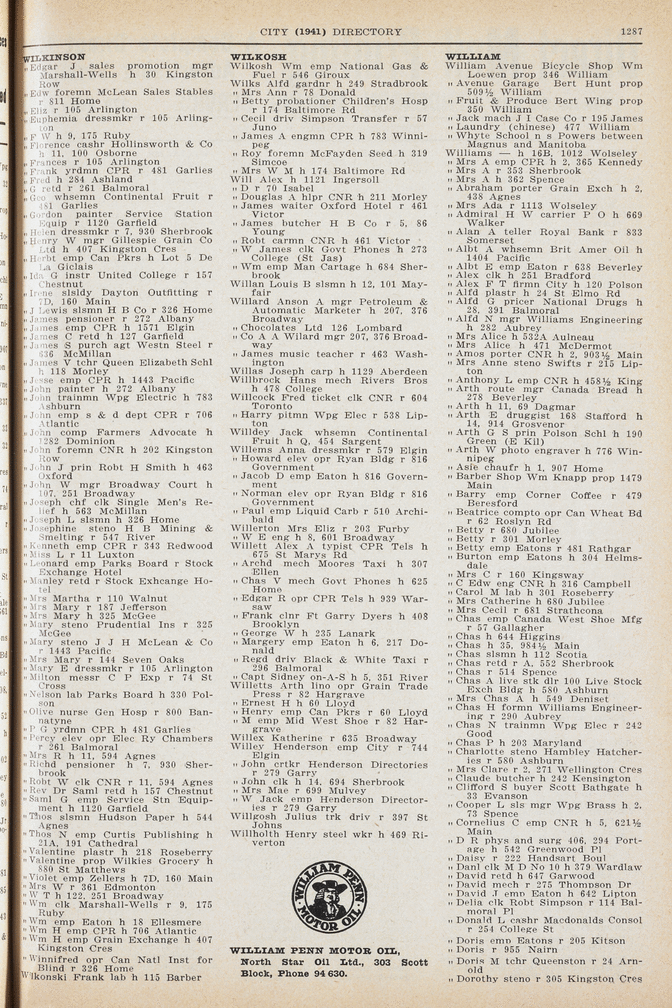 CITY (1941) DIRECTORY 1287
WILKINSON
„Edgar J sales promotion mgr
Marshall-Wells h 30 Kingston
Row
„Edw foremn McLean Sales Stables
r 811 Home
„Eliz r 105 Arlington
„Euphemia dressmkr r 105 Arling-
ton
„F W h 9, 175 Ruby
„Florence cashr Hollinsworth & Co
h 11, 100 Osborne
„Frances r 105 Arlington
„Frank yrdmn CPR r 481 Garlies
„Fred h 284 Ashland
„G retd r 261 Balmoral
„Geo whsemn Continental Fruit r
481 Garlies
„Gordon painter Service Station
Equip r 1120 Garfield
„Helen dressmkr r 7, 930 Sherbrook
„Henry W mgr Gillespie Grain Co
Ltd h 407 Kingston Cres
„Herbt emp Can Pkrs h Lot 5 De
La Giclais
„Ida G instr United College r 157
Chestnut
„Irene slsldy Dayton Outfitting r
7D, 160 Main
„J Lewis slsmn H B Co r 326 Home
„James pensioner r 272 Albany
„James emp CPR h 1571 Elgin
„James C retd h 127 Garfield
„James S purch agt Westn Steel r
436 McMillan
„James V tchr Queen Elizabeth Schl
h 118 Morley
„Jesse emp CPR h 1443 Pacific
„John painter h 272 Albany
„John trainmn Wpg Electric h 783
Ashburn
„John emp s & d dept CPR r 706
Atlantic
„John comp Farmers Advocate h
1282 Dominion
„John foremn CNR h 202 Kingston
Row
„John J prin Robt H Smith h 463
Oxford
„John W mgr Broadway Court h
107, 251 Broadway
„Joseph chf clk Single Men's Re-
lief h 563 McMillan
„Joseph L slsmn h 326 Home
„Josephine steno H B Mining &
Smelting r 547 River
„Kenneth emp CPR r 343 Redwood
„Miss L r 11 Luxton
„Leonard emp Parks Board r Stock
Exchange Hotel
„Manley retd r Stock Exhcange Ho-
tel
„Mrs Martha r 110 Walnut
„Mrs Mary r 187 Jefferson
„Mrs Mary h 325 McGee
„Mary steno Prudential Ins r 325
McGee
„Mary steno J J H McLean & Co
r 1443 Pacific
„Mrs Mary r 144 Seven Oaks
„Mary E dressmkr r 105 Arlington
„Milton messr C P Exp r 74 St
Cross
„Nelson lab Parks Board h 330 Pol-
son
„Olive nurse Gen Hosp r 800 Ban-
natyne
„P G yrdmn CPR h 481 Garlies
„Percy elev opr Elec Ry Chambers
r 261 Balmoral
„Mrs R h 11, 594 Agnes
„Richd pensioner h 7, 930 Sher-
brook
„Robt W clk CNR r 11, 594 Agnes
„Rev Dr Saml retd h 157 Chestnut
„Saml G emp Service Stn Equip-
ment h 1120 Garfield
„Thos slsmn Hudson Paper h 544
Agnes
„Thos N emp Curtis Publishing h
21A, 191 Cathedral
„Valentine plastr h 218 Roseberry
„Valentine prop Wilkies Grocery h
880 St Matthews
„Violet emp Zellers h 7D, 160 Main
„Mrs W r 361 Edmonton
„W T h 122, 251 Broadway
„Wm clk Marshall-Wells r 9, 175
Ruby
„Wm emp Eaton h 18 Ellesmere
„Wm H emp CPR h 706 Atlantic
„Wm H emp Grain Exchange h 407
Kingston Cres
„Winnifred opr Can Natl Inst for
Blind r 326 Home
Wilkonski Frank lab h 115 Barber
WILKOSH
Wilkosh Wm emp National Gas &
Fuel r 546 Giroux
Wilks Alfd gardnr h 249 Stradbrook
„Mrs Ann r 78 Donald
„Betty probationer Children's Hosp
r 174 Baltimore Rd
„Cecil driv Simpson Transfer r 57
Juno
„James A engmn CPR h 783 Winni-
peg
„Roy foremn McFayden Seed h 319
Simcoe
„Mrs W M h 174 Baltimore Rd
Will Alex h 1121 Ingersoll
„D r 70 Isabel
„Douglas A hlpr CNR h 211 Morley
„James waiter Oxford Hotel r 461
Victor
„James butcher H B Co r 5, 86
Young
„Robt carmn CNR h 461 Victor
„W James clk Govt Phones h 273
College (St Jas)
„Wm emp Man Cartage h 684 Sher-
brook
Willan Louis B slsmn h 12, 101 May-
fair
Willard Anson A mgr Petroleum &
Automatic Marketer h 207, 376
Broadway
„Chocolates Ltd 126 Lombard
„Co A A Wilard mgr 207, 376 Broad-
way
„James music teacher r 463 Wash-
ington
Willas Joseph carp h 1129 Aberdeen
Willbrock Hans mech Rivers Bros
h 478 College
Willcock Fred ticket clk CNR r 604
Toronto
„Harry pitmn Wpg Elec r 538 Lip-
ton
Willdey Jack whsemn Continental
Fruit h Q, 454 Sargent
Willems Anna dressmkr r 579 Elgin
„Howard elev opr Ryan Bldg r 816
Government
„Jacob D emp Eaton h 816 Govern-
ment
„Norman elev opr Ryan Bldg r 816
Government
„Paul emp Liquid Carb r 510 Archi-
bald
Willerton Mrs Eliz r 203 Furby
„W E eng h 8, 601 Broadway
Willett Alex A typist CPR Tels h
675 St Marys Rd
„Archd mech Moores Taxi h 307
Ellen
„Chas V mech Govt Phones h 625
Home
„Edgar R opr CPR Tels h 939 War-
saw
„Frank clnr Ft Garry Dyers h 408
Brooklyn
„George W h 235 Lanark
„Margery emp Eaton h 6, 217 Do-
nald
„Regd driv Black & White Taxi r
296 Balmoral
„Capt Sidney on-A-S h 5, 351 River
Willetts Arth lino opr Grain Trade
Press r 82 Hargrave
„Ernest H h 60 Lloyd
„Henry emp Can Pkrs r 60 Lloyd
„M emp Mid West Shoe r 82 Har-
grave
Willex Katherine r 635 Broadway
Willey Henderson emp City r 744
Elgin
„John crtkr Henderson Directories
r 279 Garry
„John clk h 14, 694 Sherbrook
„Mrs Mae r 699 Mulvey
„W Jack emp Henderson Director-
ies r 279 Garry
Willgosh Julius trk driv r 397 St
Johns
Willholth Henry steel wkr h 469 Ri-
verton
WILLIAM PENN
MOTOR OIL
WILLIAM PENN MOTOR OIL,
North Star Oil Ltd., 303 Scott
Block, Phone 94 630.
WILLIAM
William Avenue Bicycle Shop Wm
Loewen prop 346 William
„Avenue Garage Bert Hunt prop
509½ William
„Fruit & Produce Bert Wing prop
350 William
„Jack mach J I Case Co r 195 James
„Laundry (chinese) 477 William
„Whyte School n s Powers between
Magnus and Manitoba
Williams — h 16B, 1012 Wolseley
„Mrs A emp CPR h 2, 365 Kennedy
„Mrs A r 353 Sherbrook
„Mrs A h 362 Spence
„Abraham porter Grain Exch h 2,
438 Agnes
„Mrs Ada r 1113 Wolseley
„Admiral H W carrier P O h 669
Walker
„Alan A teller Royal Bank r 833
Somerset
„Albt A whsemn Brit Amer Oil h
1404 Pacific
„Albt E emp Eaton r 638 Beverley
„Alex clk h 251 Bradford
„Alex F T firmn City h 120 Polson
„Alfd plastr h 24 St Elmo Rd
„Alfd G pricer National Drugs h
28, 391 Balmoral
„Alfd N mgr Williams Engineering
h 282 Aubrey
„Mrs Alice h 532A Aulneau
„Mrs Alice h 471 McDermot
„Amos porter CNR h 2, 903½ Main
„Mrs Anne steno Swifts r 215 Lip-
ton
„Anthony L emp CNR h 458½ King
„Arth route mgr Canada Bread h
278 Beverley
„Arth h 11, 69 Dagmar
„Arth E druggist 168 Stafford h
14, 914 Grosvenor
„Arth G S prin Polson Schl h 190
Green (E Kil)
„Arth W photo engraver h 776 Win-
nipeg
„Asie chaufr h 1, 907 Home
„Barber Shop Wm Knapp prop 1479
Main
„Barry emp Corner Coffee r 479
Beresford
„Beatrice compto opr Can Wheat Bd
r 62 Roslyn Rd
„Betty r 680 Jubilee
„Betty r 301 Morley
„Betty emp Eatons r 481 Rathgar
„Burton emp Eatons h 304 Helms-
dale
„Mrs C r 160 Kingsway
„C Edw eng CNR h 316 Campbell
„Carol M lab h 301 Roseberry
„Mrs Catherine h 680 Jubilee
„Mrs Cecil r 681 Strathcona
„Chas emp Canada West Shoe Mfg
r 57 Gallagher
„Chas h 644 Higgins
„Chas h 35, 984½ Main
„Chas slsmn h 112 Scotia
„Chas retd r A, 552 Sherbrook
„Chas r 514 Spence
„Chas A live stk dlr 100 Live Stock
Exch Bldg h 580 Ashburn
„Mrs Chas A h 549 Deniset
„Chas H formn Williams Engineer-
ing r 290 Aubrey
„Chas N trainmn Wpg Elec r 242
Good
„Chas P h 203 Maryland
„Charlotte steno Hambley Hatcher-
ies r 580 Ashburn
„Mrs Clare r 2, 271 Wellington Cres
„Claude butcher h 242 Kensington
„Clifford S buyer Scott Bathgate h
33 Evanson
„Cooper L sls mgr Wpg Brass h 2,
73 Spence
„Cornelius C emp CNR h 5, 621½
Main
„D R phys and surg 406, 294 Port-
age h 542 Greenwood Pl
„Daisy r 222 Handsart Boul
„Danl clk M D No 10 h 379 Wardlaw
„David retd h 647 Garwood
„David mech r 275 Thompson Dr
„David J emp Eaton h 642 Lipton
„Delia clk Robt Simpson r 114 Bal-
moral Pl
„Donald L cashr Macdonalds Consol
r 254 College St
„Doris emp Eatons r 205 Kitson
„Doris r 955 Nairn
„Doris M tchr Queenston r 24 Arn-
old
„Dorothy steno r 305 Kingston Cres